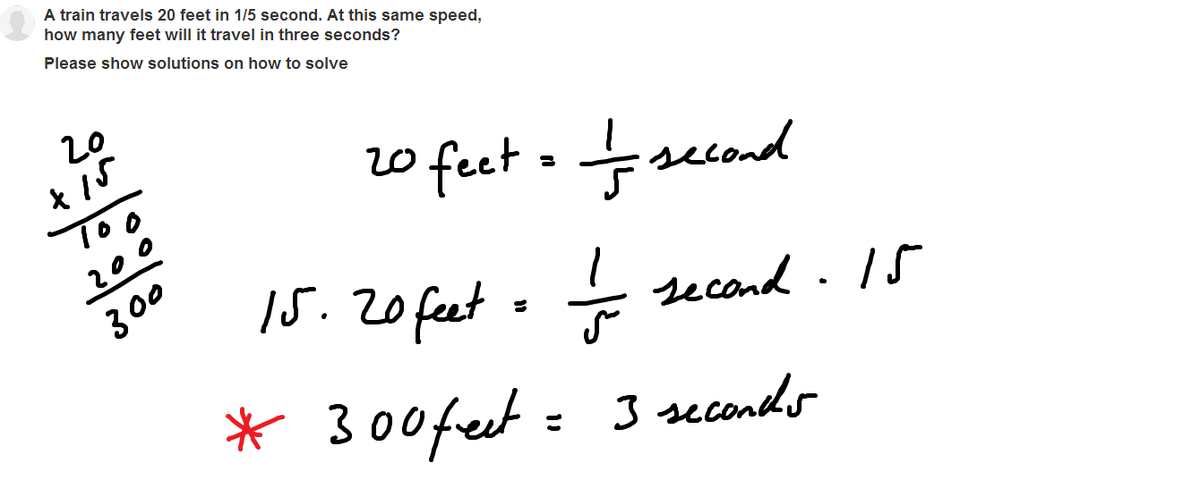 A train travels 20 feet in 1/5 second. At this same speed,
how many feet will it travel in three seconds?
Please show solutions on how to solve
20
x 15
100
200
300
20 feet = 1/5 second
15 . 20 feet = 1/5 second . 15
* 300 feet = 3 seconds